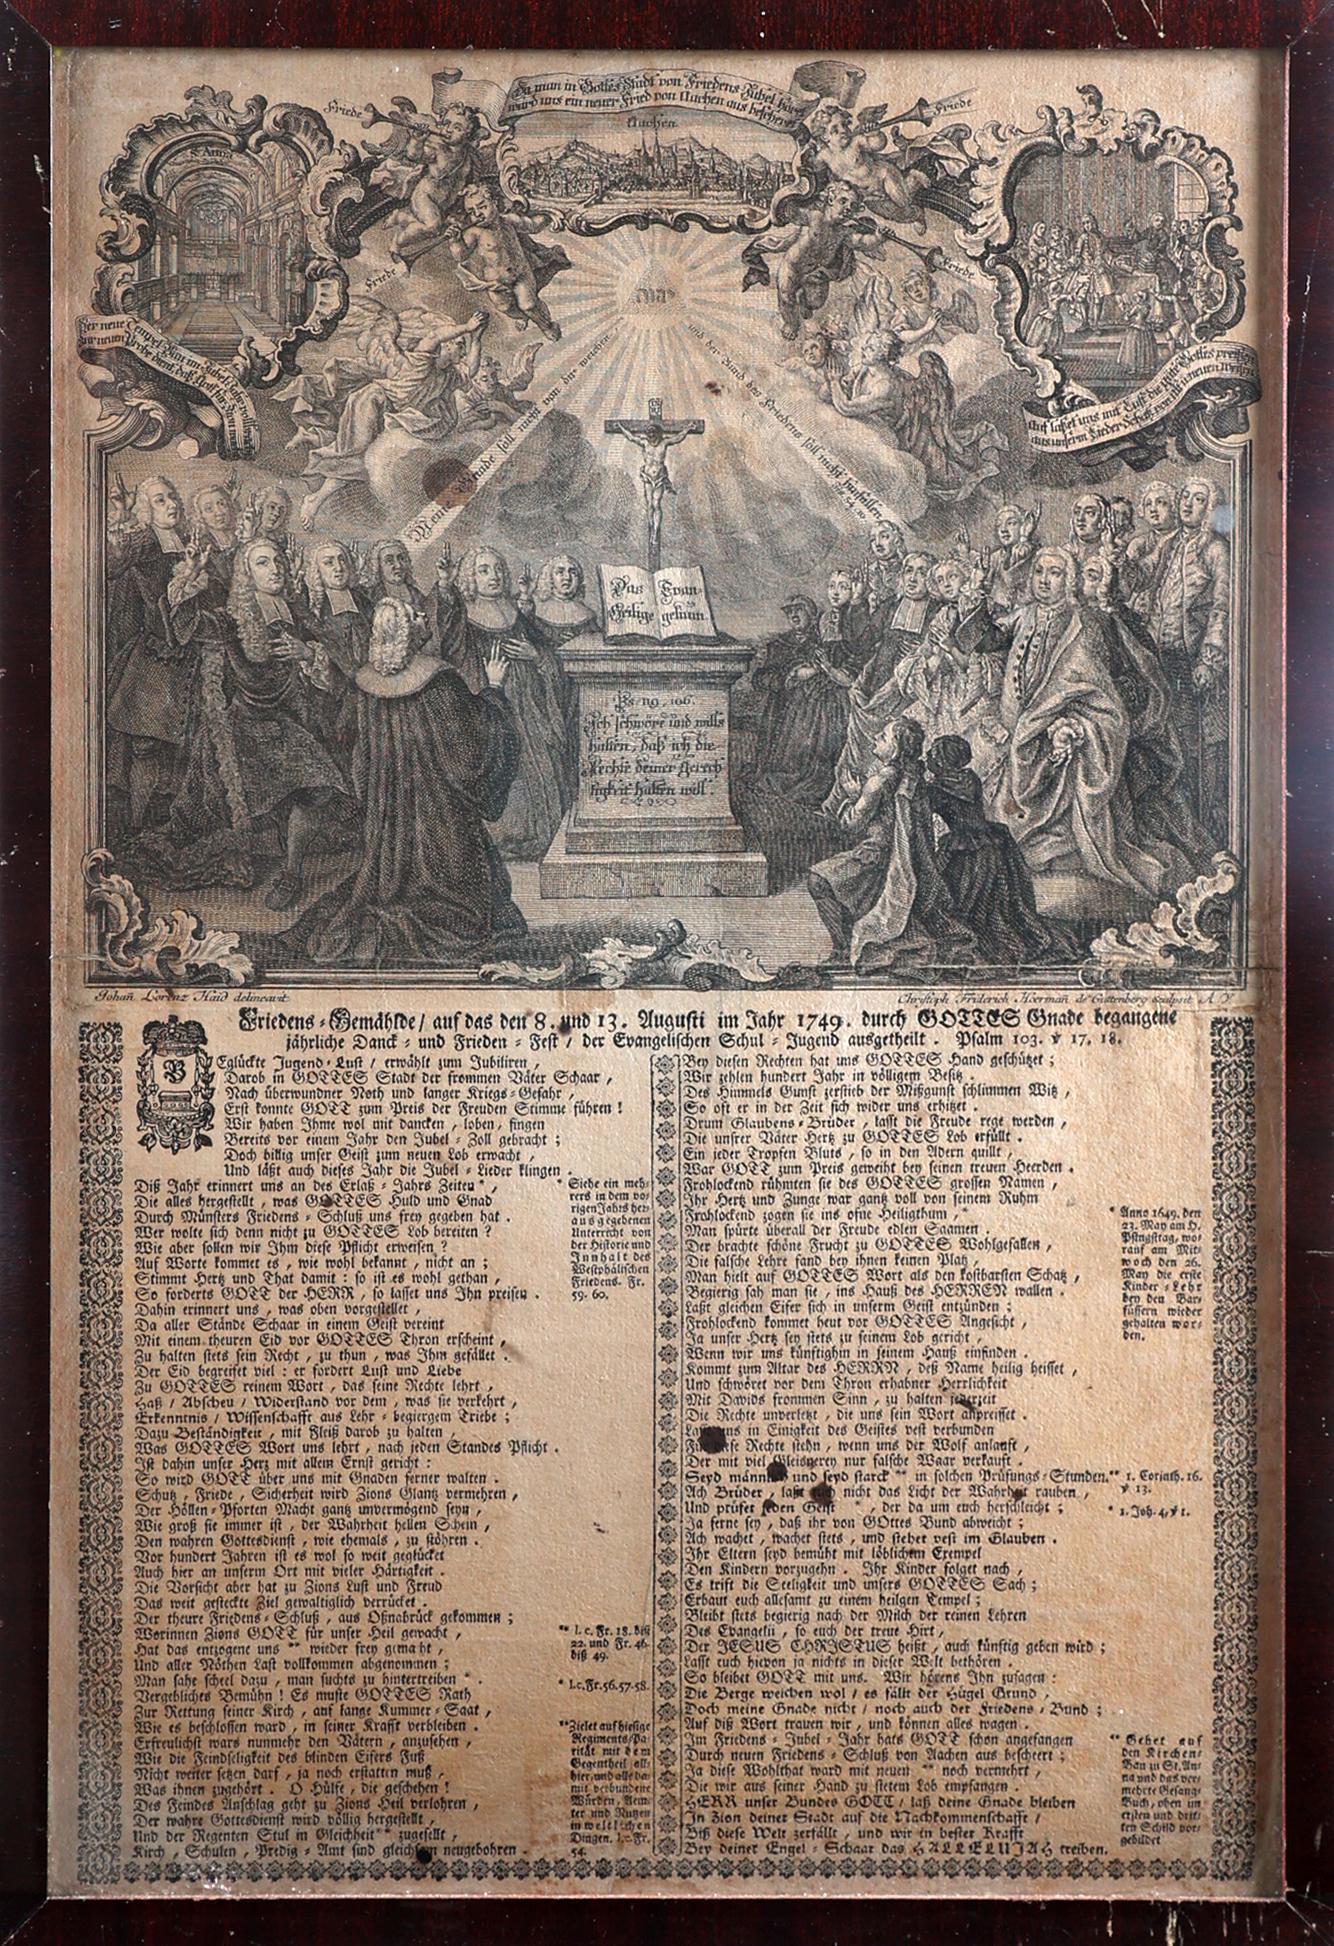 Da man in Gottes Stadt von Friedens Jubel
wird uns ein neuer Fried von Aachen aus beschert
Aachen.
Friede
Friede
Friede
Friede
S. Anna
Der neue Tempel-Bau im Jubel-Jahr
zur neuen Probe dient, daß Gott
auf laßet uns mit Lust die Güte Gottes preißen
aus unserm Lieder Schatz von mit neuen Weisen
יהוה
Meine Gnade soll nicht von dir weichen
und der Bund des Friedens soll nicht hinfallen
Das Evan-
Heilige gelium.
Ps. 119. 106.
Ich schwöre und wills
halten, daß ich die
Rechte deiner Gerech
tigkeit halten will.
Johañ Lorenz Haid delineavit
Christoph Friderich Hörman de Guttenberg sculpsit A. V.
Friedens-Gemählde / auf das den 8. und 13. Augusti im Jahr 1749. durch GOTTES Gnade begangene
jährliche Danck- und Frieden-Fest / der Evangelischen Schul-Jugend ausgetheilt. Psalm 103. v 17. 18.
BEglückte Jugend-Lust / erwählt zum Jubiliren,
Darob in GOTTES Stadt der frommen Väter Schaar,
Nach überwundner Noth und langer Kriegs-Gefahr,
Erst konnte GOTT zum Preis der Freuden Stimme führen!
Wir haben Ihme wol mit dancken, loben, singen
Bereits vor einem Jahr den Jubel-Zoll gebracht;
Doch billig unser Geist zum neuen Lob erwacht,
Und läßt auch dieses Jahr die Jubel-Lieder klingen.
Diß Jahr erinnert uns an des Erlaß-Jahrs Zeiten *,
Die alles hergestellt, was GOTTES Huld und Gnad
Durch Münsters Friedens-Schluß uns frey gegeben hat.
Wer wolte sich denn nicht zu GOTTES Lob bereiten?
Wie aber sollen wir Ihm diese Pflicht erweisen?
Auf Worte kommet es, wie wohl bekannt, nicht an;
Stimmt Hertz und That damit: so ist es wohl gethan,
So forderts GOTT der HERR, so lasset uns Ihn preisen.
Dahin erinnert uns, was oben vorgestellet,
Da aller Stände Schaar in einem Geist vereint
Mit einem theuren Eid vor GOTTES Thron erscheint,
Zu halten stets sein Recht, zu thun, was Ihm gefället.
Der Eid begreifet viel: er fordert Lust und Liebe
Zu GOTTES reinem Wort, das seine Rechte lehrt,
Haß / Abscheu / Widerstand vor dem, was sie verkehrt,
Erkenntnis / Wissenschafft aus Lehr-begiergem Triebe;
Dazu Beständigkeit, mit Fleiß darob zu halten,
Was GOTTES Wort uns lehrt, nach jeden Standes Pflicht.
Ist dahin unser Herz mit allem Ernst gericht:
So wird GOTT über uns mit Gnaden ferner walten.
Schutz, Friede, Sicherheit wird Zions Glantz vermehren,
Der Höllen-Pforten Macht gantz unvermögend seyn,
Wie groß sie immer ist, der Wahrheit hellen Schein,
Den wahren Gottesdienst, wie ehemals, zu stöhren.
Vor hundert Jahren ist es wol so weit geglücket
Auch hier an unserm Ort mit vieler Härtigkeit.
Die Vorsicht aber hat zu Zions Lust und Freud
Das weit gesteckte Ziel gewaltiglich verrücket.
Der theure Friedens-Schluß, aus Oßnabrück gekommen;
Worinnen Zions GOTT für unser Heil gewacht,
Hat das entzogene uns ** wieder frey gemacht,
Und aller Nöthen Last vollkommen abgenommen;
Man sahe scheel dazu, man suchts zu hintertreiben *.
Vergebliches Bemühn! Es muste GOTTES Rath
Zur Rettung seiner Kirch, auf lange Kummer-Saat,
Wie es beschlossen ward, in seiner Krafft verbleiben.
Erfreulichst wars nunmehr den Vätern, anzusehen,
Wie die Feindseligkeit des blinden Eifers Fuß
Nicht weiter setzen darf, ja noch erstatten muß,
Was ihnen zugehört. O Hülfe, die geschehen!
Des Feindes Anschlag geht zu Zions Heil verlohren,
Der wahre Gottesdienst wird völlig hergestellt,
Und der Regenten Stul in Gleichheit ** zugesellt,
Kirch, Schulen, Predig-Amt sind gleichsam neugebohren.
* Siehe ein meh-
rers in dem vo-
rigen Jahrs her-
ausgegebenen
Unterricht von
der Historie und
Innhalt des
Westphälischen
Friedens. Fr.
59. 60.
** l. c. Fr. 18. biß
22. und Fr. 46.
biß 49.
* l.c.Fr.56.57.58.
** Zielet auf hiesige
Regiments/Pa-
rität mit dem
Gegentheil all-
hier, und alle da-
mit verbundene
Würden, Aem-
ter und Nutzen
in weltlichen
Dingen. l. c. Fr.
54.
Bey diesen Rechten hat uns GOTTES Hand geschützet;
Wir zehlen hundert Jahr in völligem Besitz.
Des Himmels Gunst zerstieb der Mißgunst schlimmen Witz,
So oft er in der Zeit sich wider uns erhitzet.
Drum Glaubens-Brüder, lasst die Freude rege werden,
Die unsrer Väter Hertz zu GOTTES Lob erfüllt.
Ein jeder Tropfen Bluts, so in den Adern quillt,
War GOTT zum Preis geweiht bey seinen treuen Heerden.
Frohlockend rühmten sie des GOTTES grossen Namen,
Ihr Hertz und Zunge war gantz voll von seinem Ruhm
Frohlockend zogen sie ins ofne Heiligthum, *
Man spürte überall der Freude edlen Saamen.
Der brachte schöne Frucht zu GOTTES Wohlgefallen,
Die falsche Lehre fand bey ihnen keinen Platz,
Man hielt auf GOTTES Wort als den kostbarsten Schatz,
Begierig sah man sie, ins Hauß des HERREN wallen.
Laßt gleichen Eifer sich in unserm Geist entzünden;
Frohlockend kommet heut vor GOTTES Angesicht,
Ja unser Hertz sey stets zu seinem Lob gericht,
Wenn wir uns künftighin in seinem Hauß einfinden.
Kommt zum Altar des HERRN, deß Name heilig heisset,
Und schwöret vor dem Thron erhabner Herrlichkeit
Mit Davids frommen Sinn, zu halten jederzeit
Die Rechte unverletzt, die uns sein Wort anpreisset.
Lasst uns in Einigkeit des Geistes vest verbunden
Für diese Rechte stehn, wenn uns der Wolf anlauft,
Der mit viel Gleisnerey nur falsche Waar verkauft.
Seyd männlich und seyd starck ** in solchen Prüfungs-Stunden.
Ach Brüder, laßt euch nicht das Licht der Wahrheit rauben,
Und prüfet jeden Geist *, der da um euch herschleicht;
Ja ferne sey, daß ihr von GOttes Bund abweicht;
Ach wachet, wachet stets, und stehet vest im Glauben.
Ihr Eltern seyd bemüht mit löblichem Exempel
Den Kindern vorzugehn. Ihr Kinder folget nach,
Es trift die Seeligkeit und unsers GOTTES Sach;
Erbaut euch allesamt zu einem heilgen Tempel;
Bleibt stets begierig nach der Milch der reinen Lehren
Des Evangelii, so euch der treue Hirt,
Der JESUS CHRISTUS heißt, auch künftig geben wird;
Lasst euch hievon ja nichts in dieser Welt bethören.
So bleibet GOTT mit uns. Wir hörens Ihn zusagen:
Die Berge weichen wol / es fällt der Hügel Grund,
Doch meine Gnade nicht / noch auch der Friedens-Bund;
Auf diß Wort trauen wir, und können alles wagen.
Im Friedens-Jubel-Jahr hats GOTT schon angefangen
Durch neuen Friedens-Schluß von Aachen aus bescheert;
Ja diese Wohlthat ward mit neuen ** noch vermehrt,
Die wir aus seiner Hand zu stetem Lob empfangen.
HERR unser Bundes GOTT / laß deine Gnade bleiben
In Zion deiner Stadt auf die Nachkommenschafft /
Biß diese Welt zerfällt, und wir in bester Krafft
Bey deiner Engel-Schaar das HALLELUJAH treiben.
* Anno 1649. den
23. May am H.
Pfingsttag, wo-
rauf am Mit-
woch den 26.
May die erste
Kinder-Lehr
bey den Bar-
füssern wieder
gehalten wor-
den.
** 1. Corinth. 16.
v 13.
* 1. Joh. 4, v 1.
** Gehet auf
den Kirchen-
Bau zu St. An-
na und das ver-
mehrte Gesang-
Buch, oben im
ersten und drit-
ten Schild vor-
gebildet